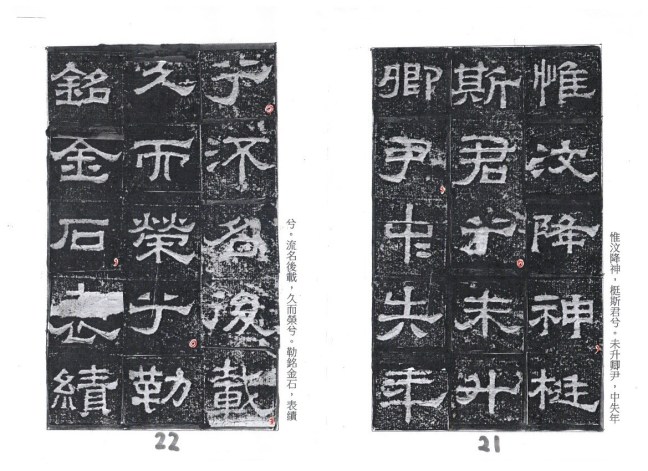 惟汶降神梃
斯君兮未升
卿尹中失年
惟汶降神，梃斯君兮。未升卿尹，中失年
21
兮流名後載
久而榮兮勒
銘金石表績
兮。流名後載，久而榮兮。勒銘金石，表績
22